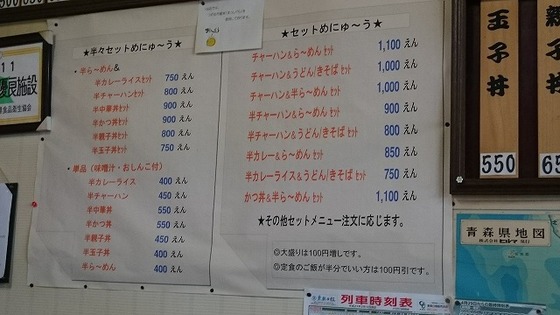 ★半々セットめにゅ～う★
・半ら～めん&
半カレーライスセット 750 えん
半チャーハンセット 800 えん
半中華丼セット 900 えん
半かつ丼セット 900 えん
半親子丼セット 800 えん
半玉子丼セット 750 えん
・単品(味噌汁・おしんこ付)
半カレーライス 400 えん
半チャーハン 450 えん
半中華丼 550 えん
半かつ丼 550 えん
半親子丼 450 えん
半玉子丼 400 えん
半ら～めん 400 えん
★セットめにゅ～う★
チャーハン&ら～めんセット 1,100 えん
チャーハン&うどん/きそばセット 1,000 えん
チャーハン&半ら～めんセット 1,000 えん
半チャーハン&ら～めんセット 900 えん
半チャーハン&うどん/きそばセット 800 えん
半カレー&ら～めんセット 850 えん
半カレーライス&うどん/きそばセット 750 えん
かつ丼&半ら～めんセット 1,100 えん
★その他セットメニュー注文に応じます。
◎大盛りは100円増しです。
◎定食のご飯が半分でいい方は100円引です。
玉子丼
550
親子丼
65
11
優良施設
青森県地図
列車時刻表